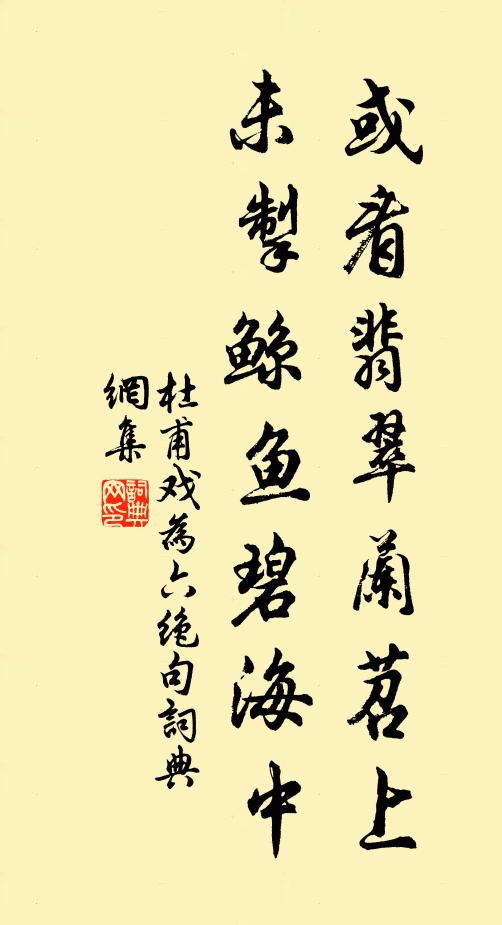 或看翡翠蘭苕上
未掣鲸鱼碧海中
杜甫戏為六絶句詞典
網集
詞典
网印